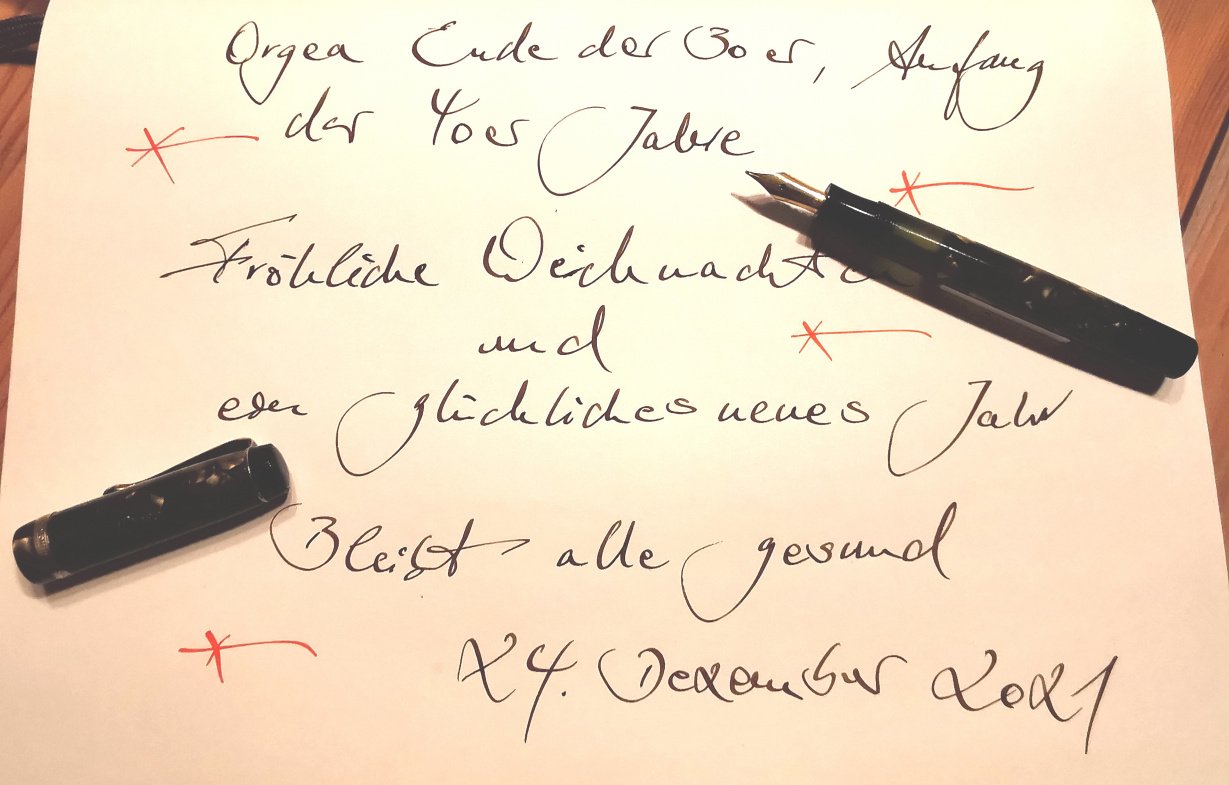 Orgea Ende der 30er, Anfang
der 40er Jahre
Fröhliche Weihnachten
und
ein glückliches neues Jahr
Bleibt alle gesund
24. Dezember 2021